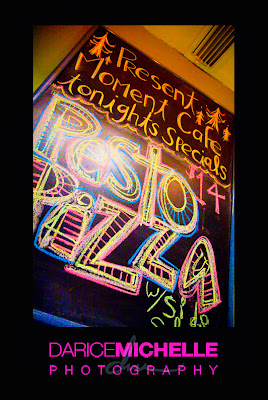 Present
Moment Cafe
tonights Specials
$14
Pesto
Pizza
w/Side
DARICEMICHELLE
PHOTOGRAPHY